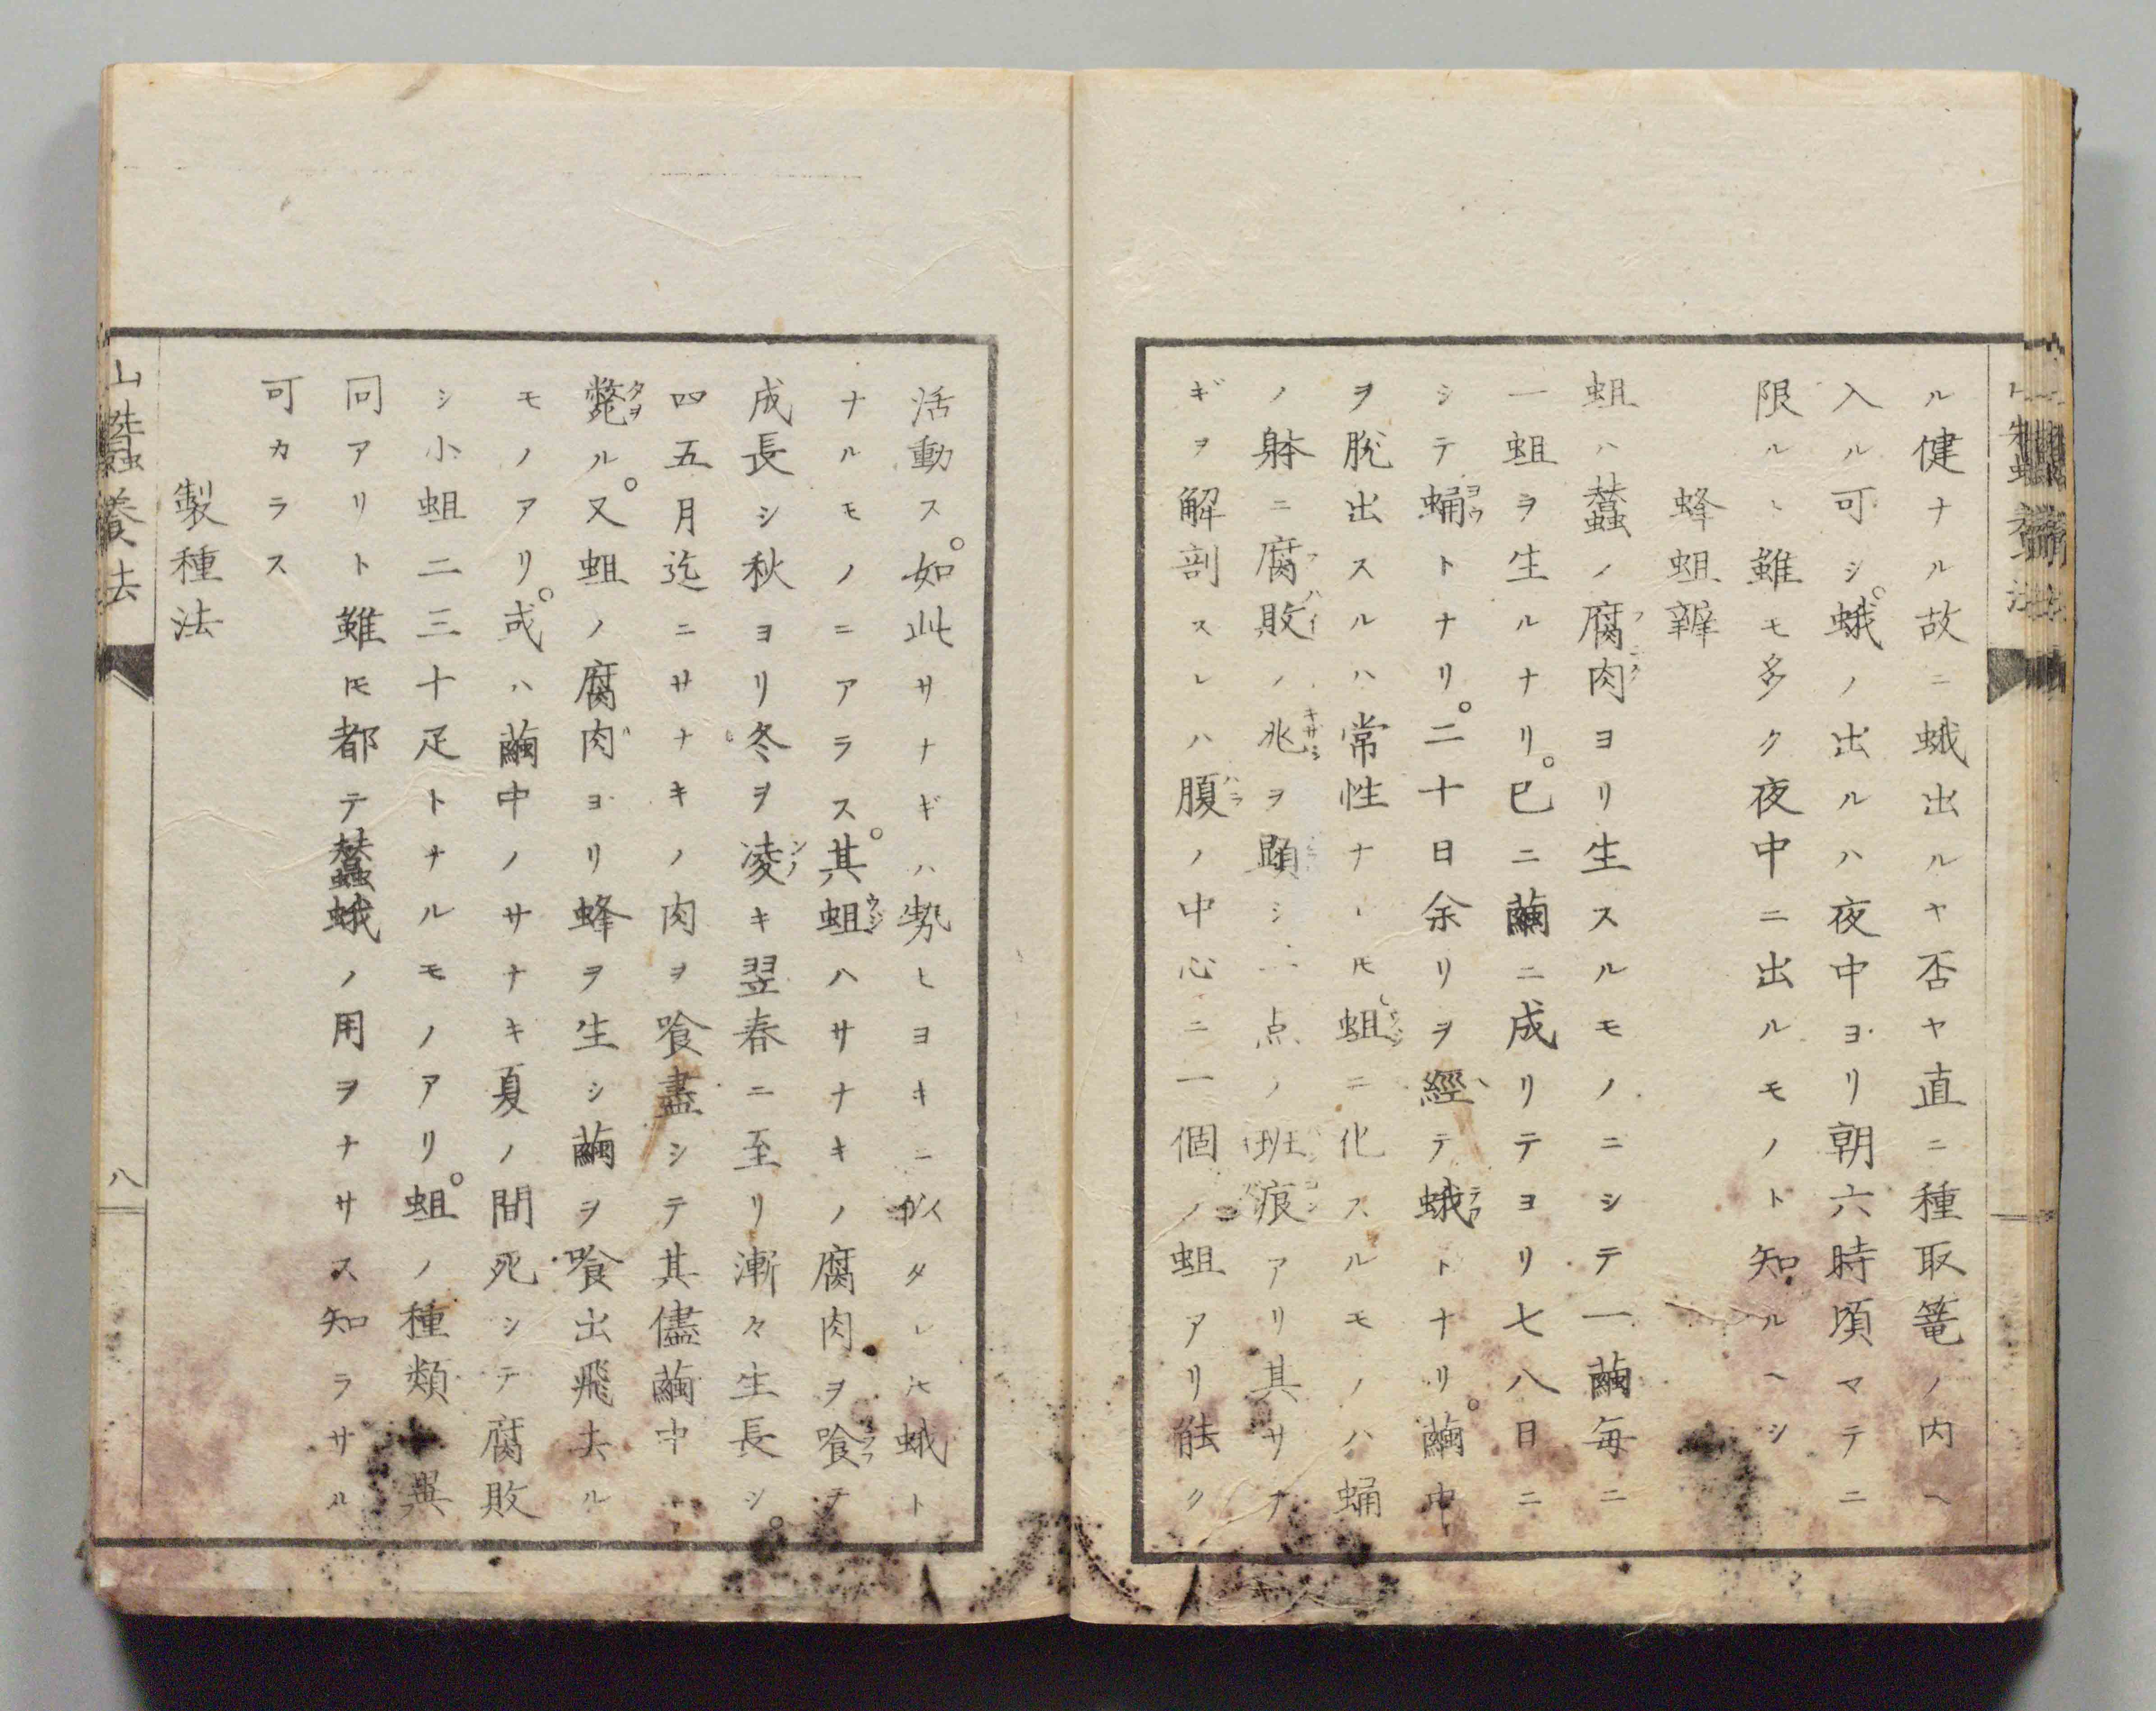 ル健ナル故ニ蛾出ルヤ否ヤ直ニ種取篭ノ内ヘ
入ル可シ。蛾ノ出ルハ夜中ヨリ朝六時頃マテニ
限ルヽ雖モ多ク夜中ニ出ルモノト知ルヘシ
蜂蛆辨
蛆ハ蠶ノ腐肉ヨリ生スルモノニシテ一繭毎ニ
一蛆ヲ生ルナリ。已ニ繭ニ成リテヨリ七八日ニ
シテ蛹トナリ。二十日余リヲ經テ蛾トナリ。繭中
ヲ脱出スルハ常性ナレ𪜈蛆ニ化スルモノハ蛹
ノ躰ニ腐敗ノ兆ヲ顕シ一点ノ班痕アリ其サナ
ギヲ解剖スレハ腹ノ中心ニ一個ノ蛆アリ能ク
活動ス。如此サナギハ勢ヒヨキニ似タレ𪜈蛾ト
ナルモノニアラス。其蛆ハサナキノ腐肉ヲ喰テ
成長シ秋ヨリ冬ヲ凌キ翌春ニ至リ漸々生長シ。
四五月迄ニサナキノ肉ヲ喰盡シテ其儘繭中
斃ル。又蛆ノ腐肉ヨリ蜂ヲ生シ繭ヲ喰出飛去ル
モノアリ。或ハ繭中ノサナキ夏ノ間死シテ腐敗
シ小蛆二三十疋トナルモノアリ。蛆ノ種類十異
同アリト雖𪜈都テ蠶蛾ノ用ヲナサス知ラサル
可カラス
製種法
山蠶養法
八